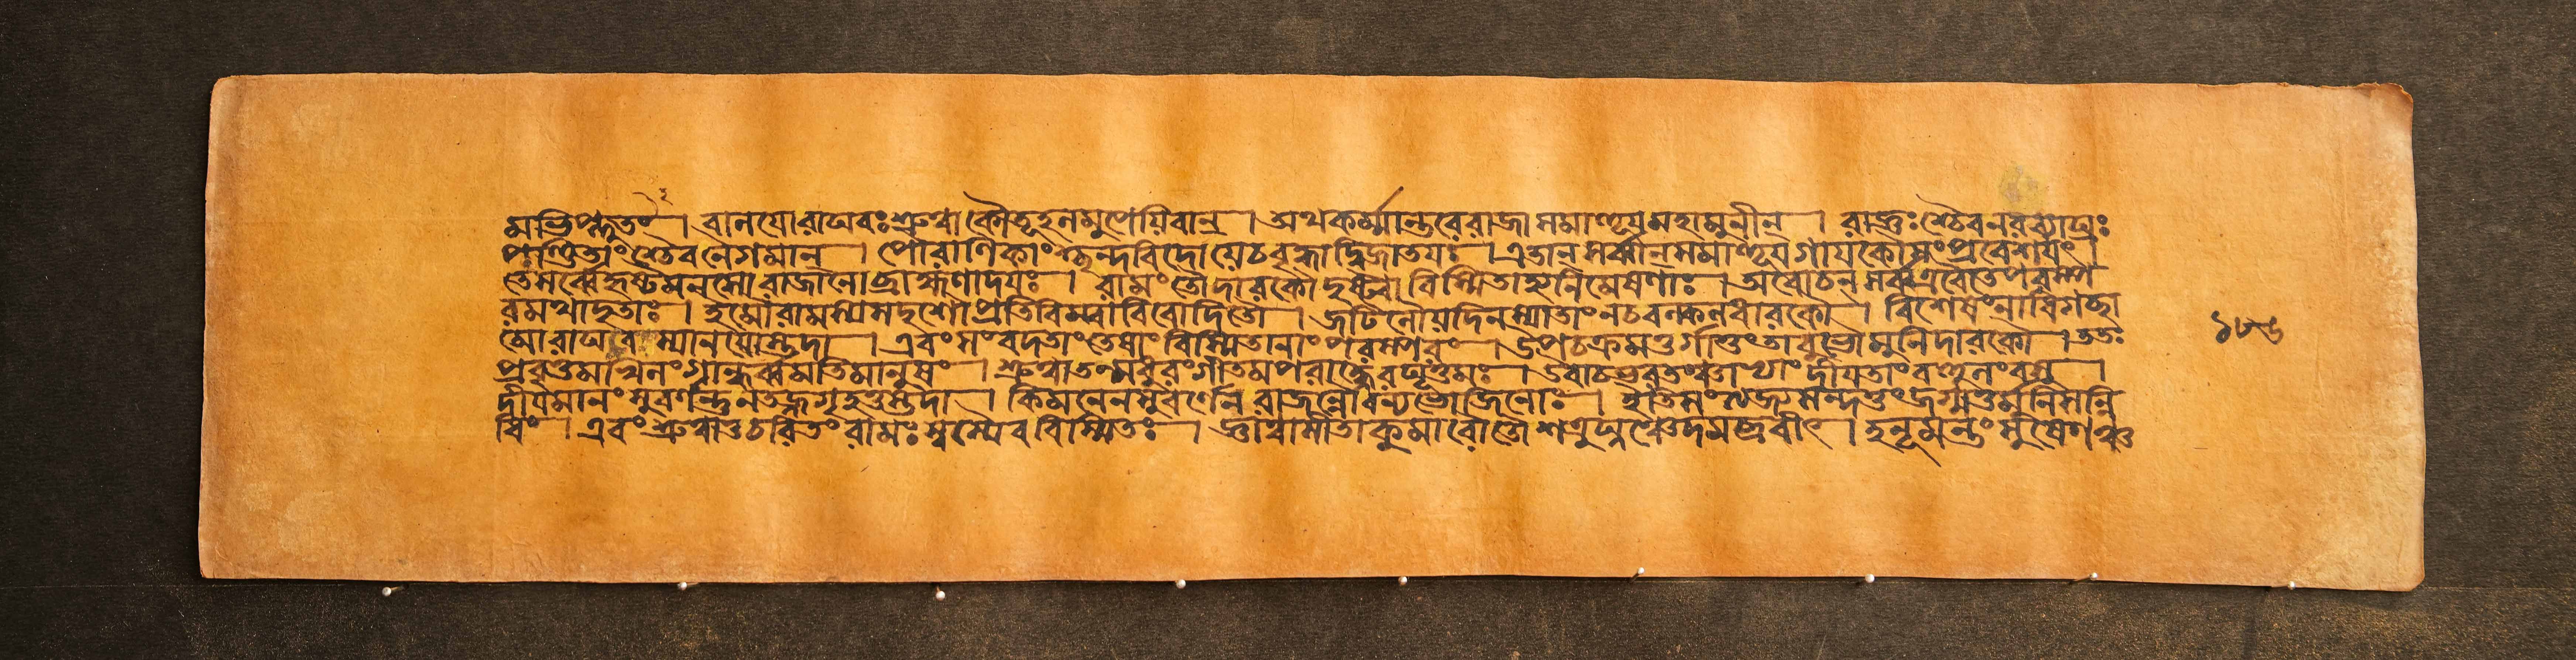 মভিপ্লুতং । বালয়ো রাঘবঃ শ্রুত্বা কৌতূহলমুপেয়িবান্ । অথ কর্ম্মান্তরে রাজা সমাহূয় মহামুনীন্ । রাজ্ঞঃ শ্চৈব নরব্যাঘ্রঃ
পণ্ডিতাংশ্চৈব নৈগমান্ । পৌরাণিকাং শ্ছন্দবিদো য়ে চ বৃদ্ধা দ্বিজাতয়ঃ । এতান্ সর্ব্বান্ সমাহূয় গায়কৌ সংপ্রবেশয়ৎ ।
তে সর্ব্বে হৃষ্টমনসো রাজানো ব্রাহ্মণাদয়ঃ । রামং তৌ দারকৌ দৃষ্ট্বা বিস্মিতা হ্যনিমেষণাঃ । অবোচন্ সর্ব্ব এবৈতে পরস্প
রমথাদৃতাঃ । ইমৌ রামস্য সদৃশৌ প্রতিবিম্বাবিবোদিতৌ । জটিলৌ য়দি ন স্যাতাং ন চ বল্কলধারকৌ । বিশেষং নাধিগচ্ছা
মো রাঘবস্যানয়োস্তদা । এবং সংবদতাং তেষাং বিস্মিতানাং পরস্পরং । উপচক্রমতুর্গাতুং তাবুভৌ মুনিদারকৌ । ততঃ
প্রবৃত্তমখিলং গান্ধর্ব্বমতিমানুষং । শ্রুত্বা তন্মধুরং গীতমপরাহ্ণে রঘূত্তমঃ । উবাচ ভরতং চাভ্যাং দীয়তাং বহুলং বসু ।
দীয়মানং সুবর্ণন্তু ন তজ্জগৃহতুস্তদা । কিমনেন সুবর্ণেন রাজন্নৌ বন্যভোজিনোঃ । ইতি সংত্যজ্য সন্দত্তং জগ্মতুর্মুনিসন্নি
ধিং । এবং শ্রুত্বা তু চরিতং রামঃ স্বস্যৈব বিস্মিতঃ । জ্ঞাত্বা সীতাকুমারৌ তৌ শত্রুঘ্নঞ্চেদমব্রবীৎ । হনূমন্তং সুষেণঞ্চ